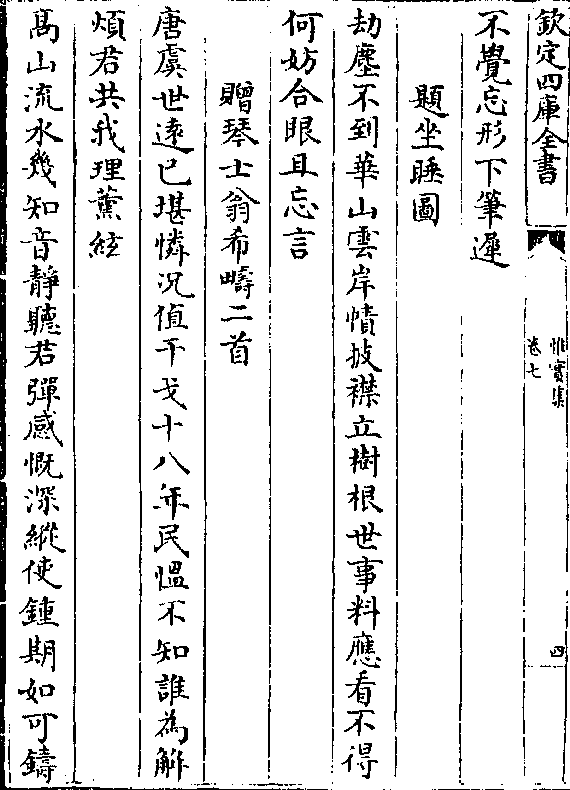 欽定四庫全書
惟實集
卷七
四
不覺忘形下筆遲
題坐睡圖
劫塵不到華山雲岸幘披襟立樹根世事料應看不得
何妨合眼且忘言
贈琴士翁希疇二首
唐虞世遠已堪憐况值干戈十八年民愠不知誰為解
煩君共我理薰絃
髙山流水幾知音靜聽君彈感慨深縱使鍾期如可鑄